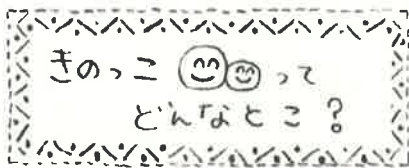 きのっこ って
どんなとこ？